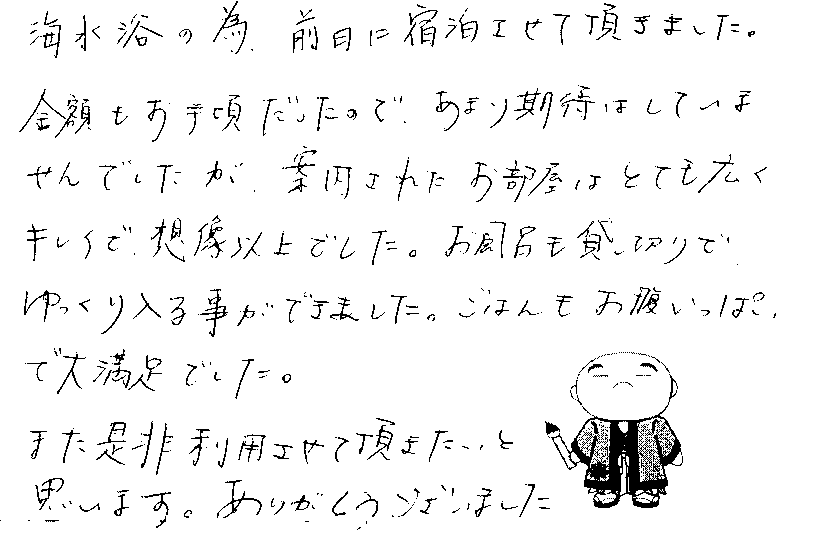 海水浴の為、前日に宿泊させて頂きました。
金額もお手頃だったので、あまり期待はしていま
せんでしたが、案内されたお部屋はとても広く
キレイで、想像以上でした。お風呂も貸し切りで
ゆっくり入る事ができました。ごはんもお腹いっぱい
で大満足でした。
また是非利用させて頂きたいと
思います。ありがとうございました